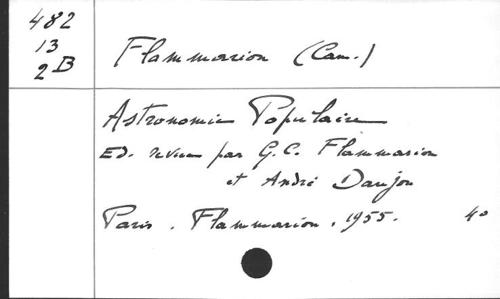 482
13
2B
Flammarion (Cam.)
Astronomie Populaire
Ed. revue par G.C. Flammarion
et André Danjon
Paris. Flammarion, 1955. 4°